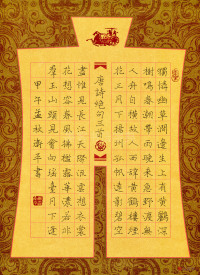 獨憐幽草澗邊生上有黃鸝深
樹鳴春潮帶雨晚來急野渡無
人舟自橫故人西辭黃鶴樓煙
花三月下揚州孤帆遠影碧空
唐詩絕句三首
盡惟見長江天際流雲想衣裳
花想容春風拂檻露華濃若非
群玉山頭見會向瑤臺月下逢
甲午孟秋 平書